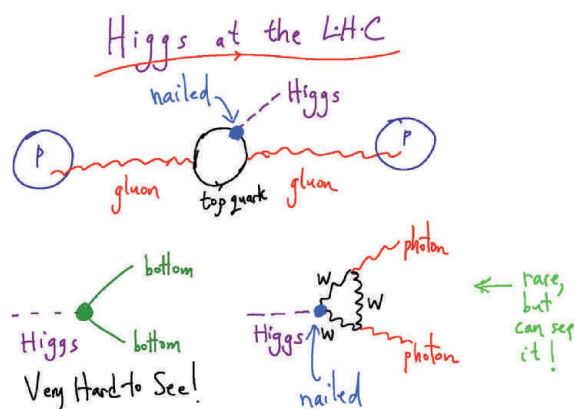 Higgs at the L.H.C
nailed
Higgs
P
P
gluon
top quark
gluon
bottom
bottom
Higgs
Very Hard to See!
photon
W
W
W
Higgs
photon
nailed
rare,
but
can see
it!